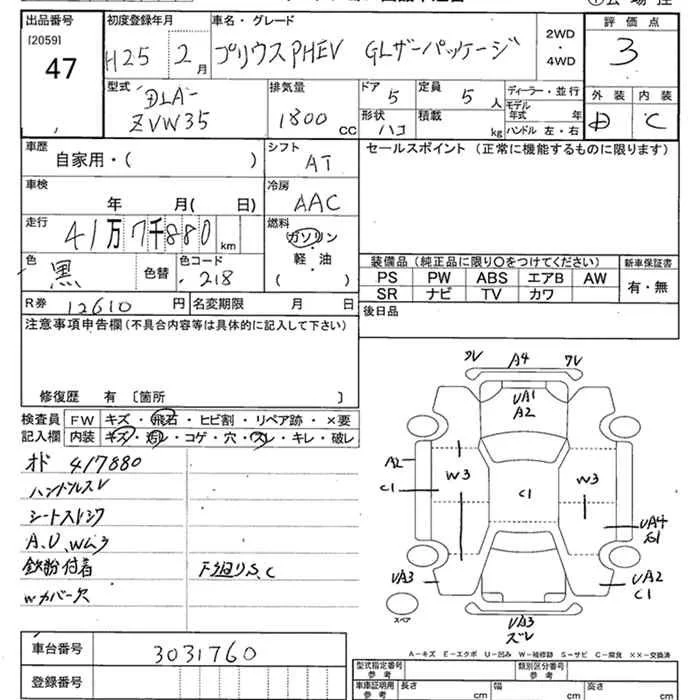 出品番号
[2059]
47
初度登録年月
H25 2月
車名・グレード
プリウスPHEV GLザーパッケージ
2WD
・
4WD
評価点
3
外装 内装
D C
型式
DLA-
ZVW35
排気量
1800 CC
ドア
5
定員
5人
形状
ハコ
積載
kg
ディーラー・並行
モデル
年式 年
ハンドル 左・右
車歴
自家用・( )
シフト
AT
セールスポイント (正常に機能するものに限ります)
車検
年 月( 日)
冷房
AAC
走行
41万7千880 km
燃料
ガソリン
・
軽油
・
( )
色
黒
色替
色コード
218
装備品 (純正品に限り○をつけてください)
新車保証書
PS PW ABS エアB AW
SR ナビ TV カワ
有・無
R券 12610 円
名変期限 月 日
後日品
注意事項申告欄 (不具合内容等は具体的に記入して下さい)
修復歴 有 〔箇所 〕
検査員
記入欄
FW キズ・飛石・ヒビ割・リペア跡・×要
内装 キズ・汚レ・コゲ・穴・スレ・キレ・破レ
オド 417880
ハンドルスレ
シートスレシワ
A、U、Wムラ
鉄粉付着
下廻りS、C
Wカバー欠
ワレ A4 ワレ
UA1
A2
A2
C1
W3
C1
W3
UA4
G1
UA3
UA2
C1
スペア
UA3
ズレ
A-キズ E-エクボ U-凹み W-補修跡 S-サビ C-腐食 ××-交換済
車台番号
3031760
登録番号
型式指定番号
参考
類別区分番号
参考
車庫証明用
参考
長さ cm
幅 cm
高さ cm